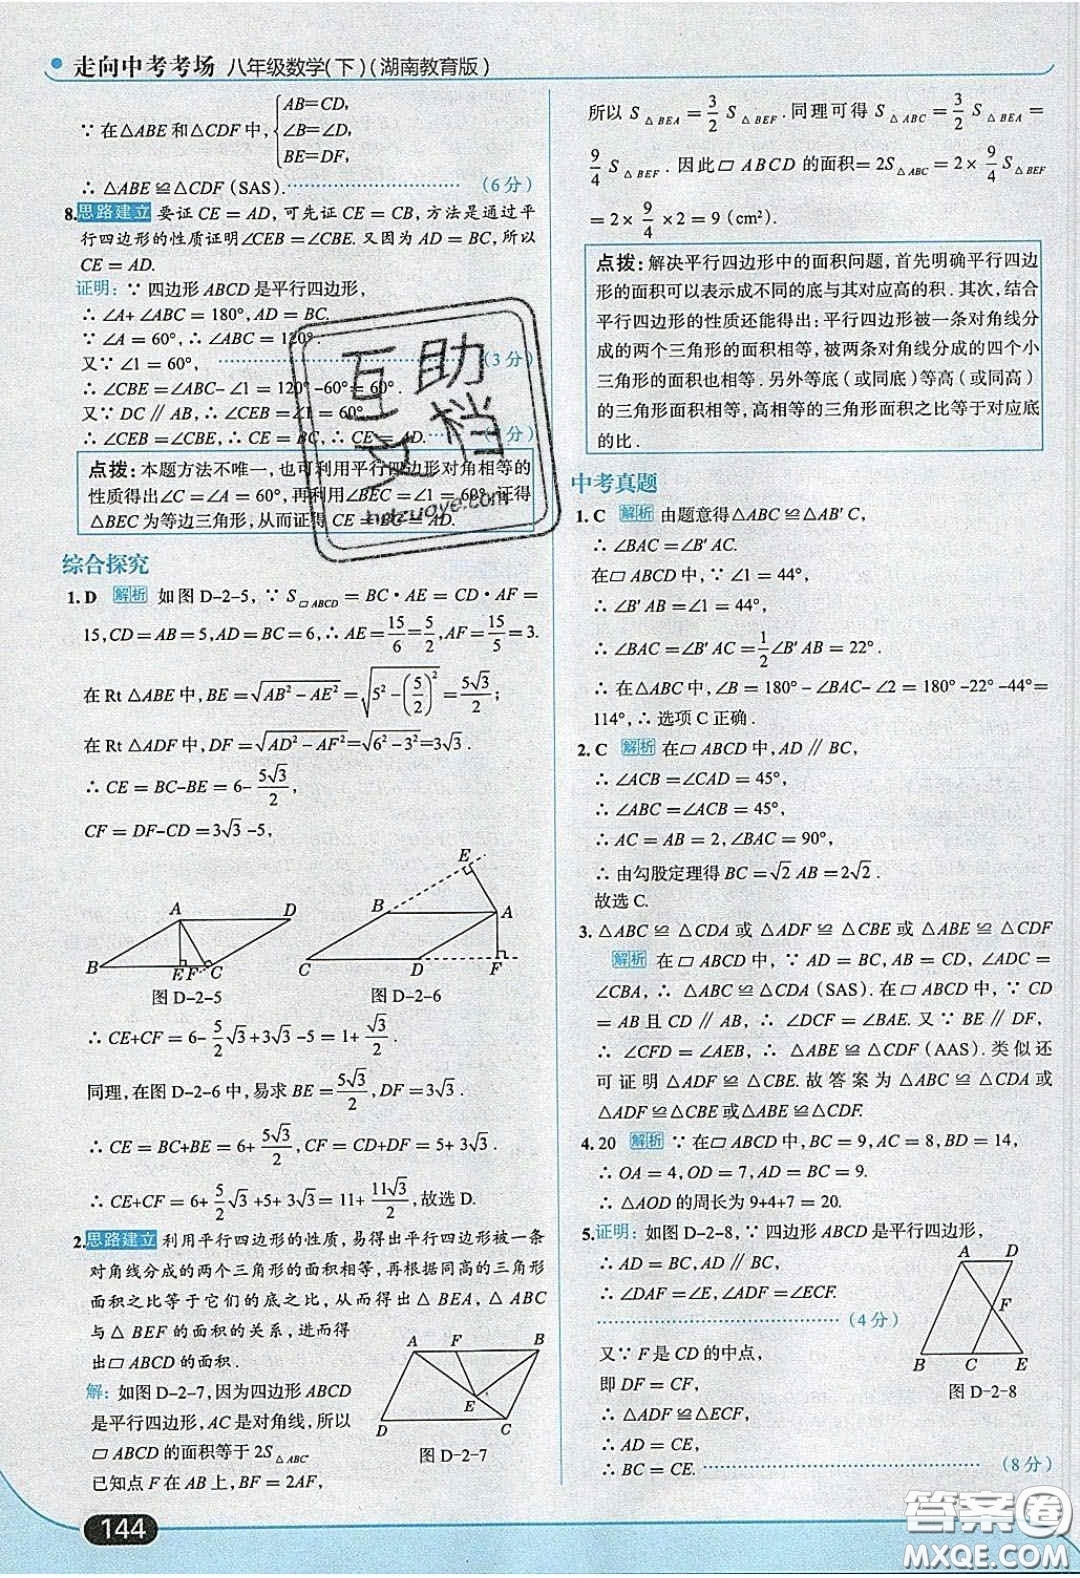 走向中考考场 八年级数学(下)(湖南教育版)
∵在△ABE和△CDF中,{AB=CD,
∠B=∠D,
BE=DF,
∴△ABE≌△CDF(SAS).……………………(6分)
8.思路建立 要证CE=AD,可先证CE=CB,方法是通过平
行四边形的性质证明∠CEB=∠CBE.又因为AD=BC,所以
CE=AD.
证明:∵四边形ABCD是平行四边形,
∴∠A+∠ABC=180°,AD=BC.
∵∠A=60°,∴∠ABC=120°.
又∵∠1=60°,……………………(3分)
∴∠CBE=∠ABC-∠1=120°-60°=60°.
又∵DC∥AB,∴∠CEB=∠1=60°.
∴∠CEB=∠CBE,∴CE=BC,∴CE=AD.……(分)
点拨:本题方法不唯一,也可利用平行四边形对角相等的
性质得出∠C=∠A=60°,再利用∠BEC=∠1=60°,证得
△BEC为等边三角形,从而证得CE=BC=AD.
综合探究
1.D 解析 如图D-2-5,∵S▱ABCD=BC·AE=CD·AF=
15,CD=AB=5,AD=BC=6,∴AE=15/6=5/2,AF=15/5=3.
在Rt△ABE中,BE=√(AB²-AE²)=√(5²-(5/2)²)=5√3/2;
在Rt△ADF中,DF=√(AD²-AF²)=√(6²-3²)=3√3.
∴CE=BC-BE=6-5√3/2,
CF=DF-CD=3√3-5,
A D B E F C
图D-2-5
E B A C D F
图D-2-6
∴CE+CF=6-5/2√3+3√3-5=1+√3/2.
同理,在图D-2-6中,易求BE=5√3/2,DF=3√3.
∴CE=BC+BE=6+5√3/2,CF=CD+DF=5+3√3.
∴CE+CF=6+5/2√3+5+3√3=11+11√3/2,故选D.
2.思路建立 利用平行四边形的性质,易得出平行四边形被一条
对角线分成的两个三角形的面积相等,再根据同高的三角形
面积之比等于它们的底之比,从而得出△BEA,△ABC
与△BEF的面积的关系,进而得
出▱ABCD的面积.
解:如图D-2-7,因为四边形ABCD
是平行四边形,AC是对角线,所以
▱ABCD的面积等于2S△ABC.
已知点F在AB上,BF=2AF,
A F B E D C
图D-2-7
所以S△BEA=3/2S△BEF.同理可得S△ABC=3/2S△BEA=
9/4S△BEF.因此▱ABCD的面积=2S△ABC=2×9/4S△BEF
=2×9/4×2=9(cm²).
点拨:解决平行四边形中的面积问题,首先明确平行四边
形的面积可以表示成不同的底与其对应高的积.其次,结合
平行四边形的性质还能得出:平行四边形被一条对角线分
成的两个三角形的面积相等,被两条对角线分成的四个小
三角形的面积也相等.另外等底(或同底)等高(或同高)
的三角形面积相等,高相等的三角形面积之比等于对应底
的比.
中考真题
1.C 解析 由题意得△ABC≌△AB'C,
∴∠BAC=∠B'AC.
在▱ABCD中,∵∠1=44°,
∴∠B'AB=∠1=44°,
∴∠BAC=∠B'AC=1/2∠B'AB=22°.
∴在△ABC中,∠B=180°-∠BAC-∠2=180°-22°-44°=
114°,∴选项C正确.
2.C 解析 在▱ABCD中,AD∥BC,
∴∠ACB=∠CAD=45°,
∴∠ABC=∠ACB=45°,
∴AC=AB=2,∠BAC=90°,
∴由勾股定理得BC=√2AB=2√2.
故选C.
3.△ABC≌△CDA或△ADF≌△CBE或△ABE≌△CDF
解析 在▱ABCD中,∵AD=BC,AB=CD,∠ADC=
∠CBA,∴△ABC≌△CDA(SAS).在▱ABCD中,∵CD
=AB且CD∥AB,∴∠DCF=∠BAE.又∵BE∥DF,
∴∠CFD=∠AEB,∴△ABE≌△CDF(AAS).类似还
可证明△ADF≌△CBE.故答案为△ABC≌△CDA或
△ADF≌△CBE或△ABE≌△CDF.
4.20 解析 ∵在▱ABCD中,BC=9,AC=8,BD=14,
∴OA=4,OD=7,AD=BC=9.
∴△AOD的周长为9+4+7=20.
5.证明:如图D-2-8,∵四边形ABCD是平行四边形,
∴AD=BC,AD∥BC,
∴∠DAF=∠E,∠ADF=∠ECF.
……………………(4分)
又∵F是CD的中点,
即DF=CF,
∴△ADF≌△ECF,
∴AD=CE,
∴BC=CE.……………………(8分)
A D F B C E
图D-2-8
144
互助文档
hdzuoye.com
答案圈
MXQE.COM